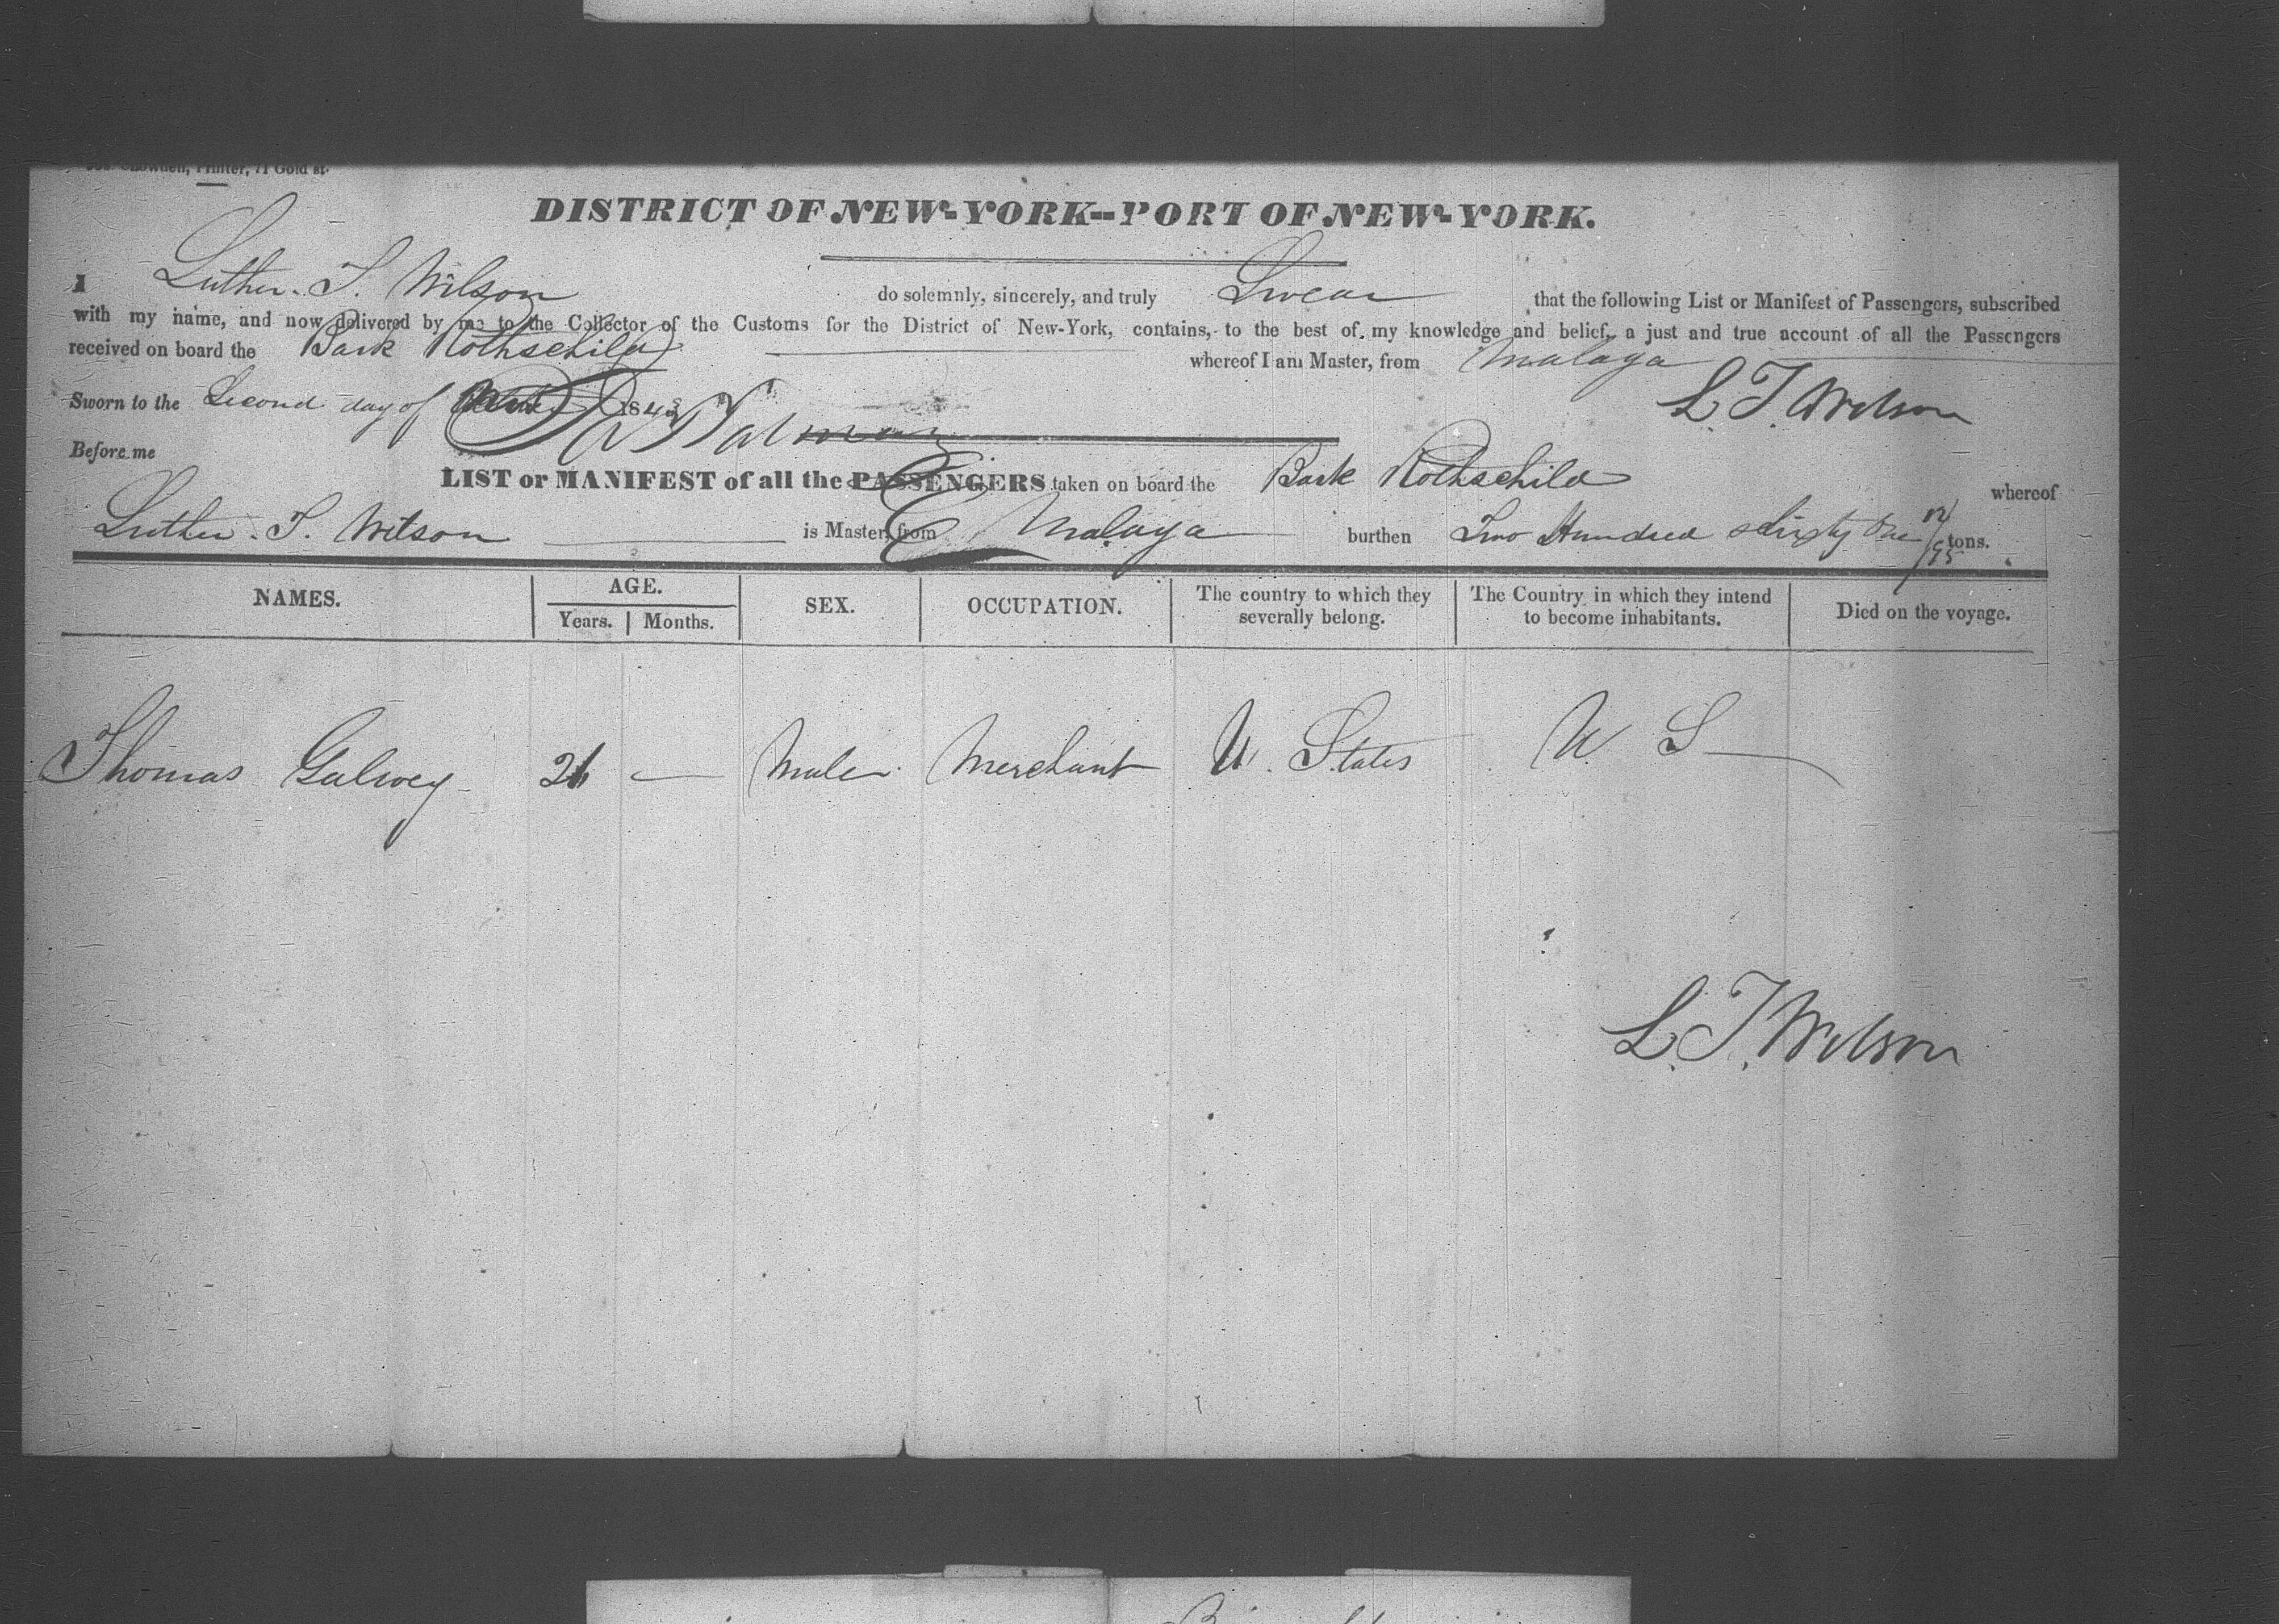 Printer, 71 Gold st.
DISTRICT OF NEW-YORK--PORT OF NEW-YORK.
I Luther. T. Wilson do solemnly, sincerely, and truly Swear that the following List or Manifest of Passengers, subscribed
with my name, and now delivered by me to the Collector of the Customs for the District of New-York, contains, to the best of my knowledge and belief, a just and true account of all the Passengers
received on board the Bark Rothschild whereof I am Master, from Malaga
L. T. Wilson
Sworn to the Second day of 184
Before me
LIST or MANIFEST of all the PASSENGERS taken on board the Bark Rothschild whereof
Luther. T. Wilson is Master, from Malaga burthen Two Hundred & Sixty One 12/95 tons.
NAMES. AGE. SEX. OCCUPATION. The country to which they severally belong. The Country in which they intend to become inhabitants. Died on the voyage.
Years. Months.
Thomas Galwey Male Merchant U. States U S
L. T. Wilson